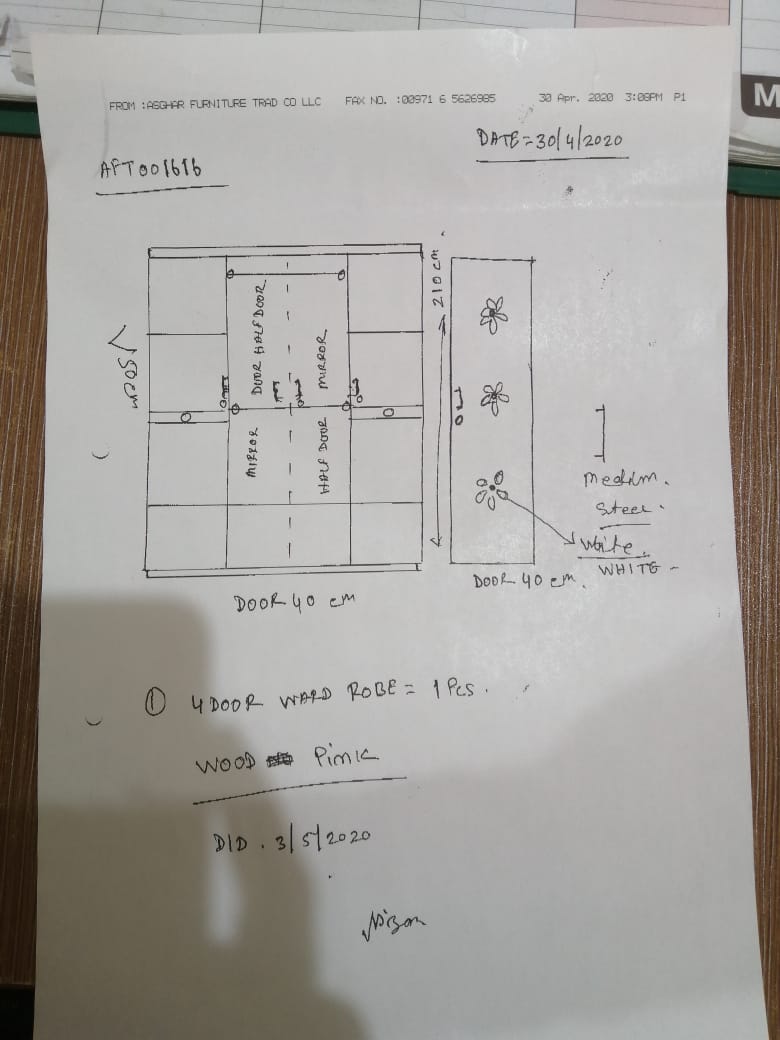 FROM :ASGHAR FURNITURE TRAD CO LLC FAX NO. :00971 6 5626985 30 Apr. 2020 3:08PM P1
M
DATE=30/4/2020
AFT001616
50cm
DOOR HALF DOOR
MIRROR
MIRROR
HALF DOOR
210 cm
medium.
Steel.
White.
WHITE
DOOR 40 cm
DOOR 40 cm.
① 4 DOOR WARD ROBE = 1 Pcs.
WOOD Pink
D/D. 3/5/2020